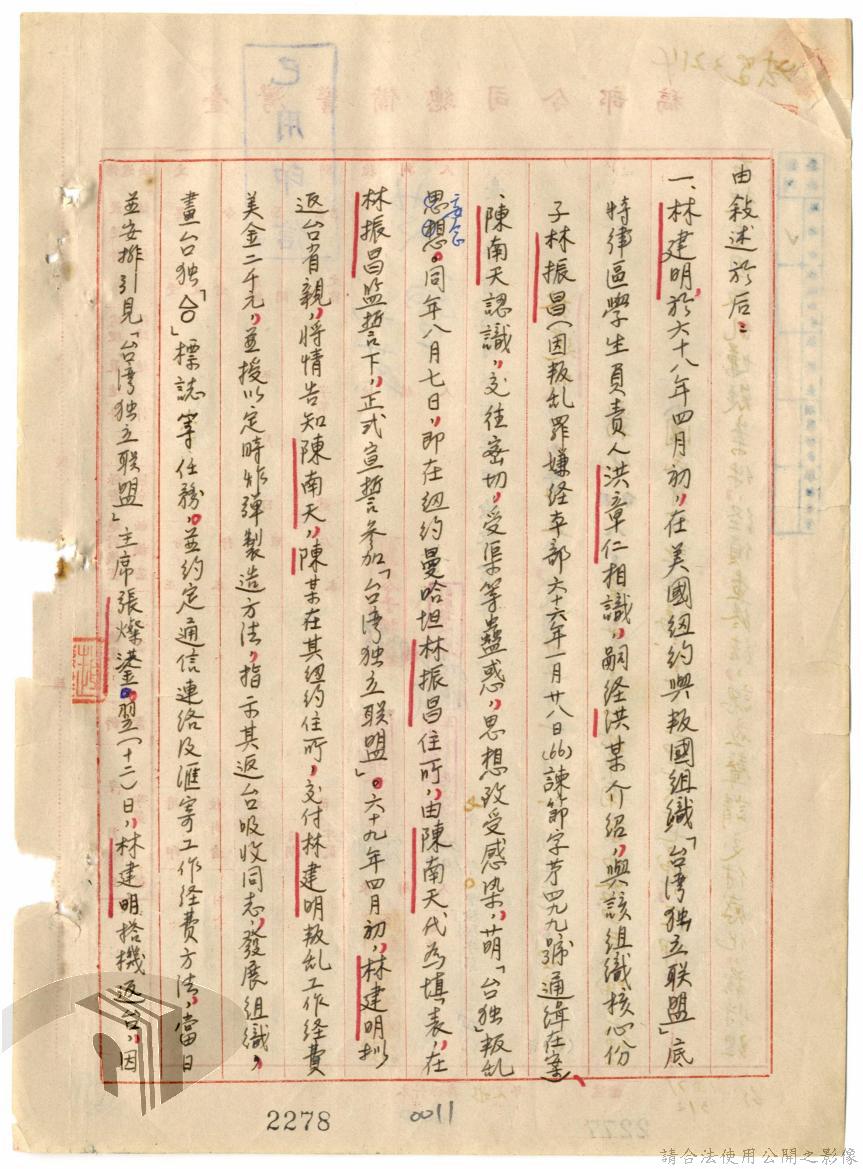 由敘述於后：
一、林建明，於六十八年四月初，在美國紐約與叛國組織「台湾独立联盟」底
特律區學生負責人洪章仁相識，嗣经洪某介绍，與該组織核心份
子林振昌（因叛乱罪嫌经本部六十六年一月廿八日(66)諫節字第四九九號通緝在案）
陳南天認識，交往密切，受渠等蠱惑，思想改受感染，萌「台独」叛乱
意念。同年八月七日，即在紐約曼哈坦林振昌住所，由陳南天代為填表，在
林振昌监誓下，正式宣誓参加「台湾独立联盟」。六十九年四月初，林建明拟
返台省親，將情告知陳南天，陳某在其纽约住所，交付林建明叛乱工作经費
美金二千元，並授以定時炸弹製造方法，指示其返台吸收同志，發展组織，
畫台独「台」標誌等任務，並约定通信連絡及滙寄工作经費方法，當日
並安排引見「台湾独立联盟」主席張燦鍙。翌（十二）日，林建明搭機返台，因
2278
0011
已用印
稿部令司總備警灣臺
2277
請合法使用公開之影像